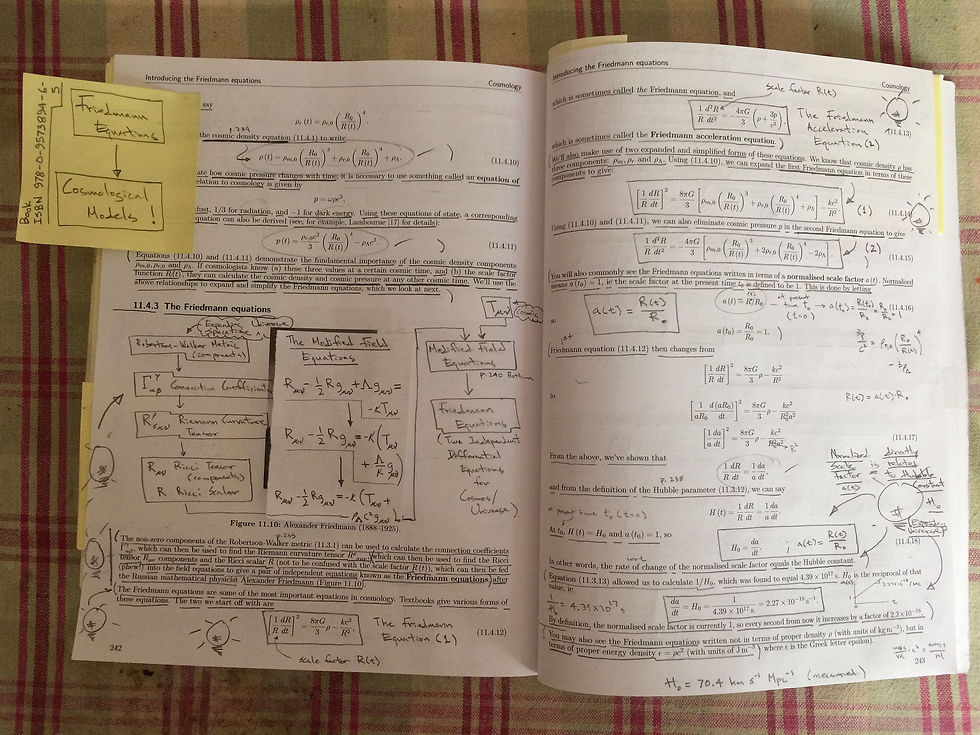 Book
ISBN 978-0-9573894-6-5
Friedmann
Equations
Cosmological
Models !
Introducing the Friedmann equations
Cosmology
say
ρ_r(t) = ρ_{r,0} (R_0/R(t))^4
p.239
the cosmic density equation (11.4.1) to write
ρ(t) = ρ_{m,0} (R_0/R(t))^3 + ρ_{r,0} (R_0/R(t))^4 + ρ_Λ.
(11.4.10)
ate how cosmic pressure changes with time, it is necessary to use something called an equation of
relation to cosmology is given by
p = ωρc²,
dust, 1/3 for radiation, and −1 for dark energy. Using these equations of state, a corresponding
equation can also be derived (see, for example, Lambourne [17] for details):
p(t) = ρ_{r,0}c²/3 (R_0/R(t))^4 − ρ_Λc².
(11.4.11)
Equations (11.4.10) and (11.4.11) demonstrate the fundamental importance of the cosmic density components
ρ_{m,0}, ρ_{r,0} and ρ_Λ. If cosmologists know (a) these three values at a certain cosmic time, and (b) the scale
function R(t), they can calculate the cosmic density and cosmic pressure at any other cosmic time. We'll use the
above relationships to expand and simplify the Friedmann equations, which we look at next.
11.4.3 The Friedmann equations
Expanding Universe
Spacetime
Robertson-Walker Metric
(components)
Γ^γ_{αβ} Connection Coefficients
Riemann Curvature
Tensor
R_{μν} Ricci Tensor
(components)
R Ricci Scalar
The Modified Field
Equations
R_{μν} − ½ R g_{μν} + Λ g_{μν} =
−κ T_{μν}
R_{μν} − ½ R g_{μν} = −κ (T_{μν}
+ Λ/κ g_{μν})
R_{μν} − ½ R g_{μν} = −κ (T_{μν} +
ρ_Λ c² g_{μν})
T_{μν} Cosmic
Modified Field
Equations
p.240 Bottom
Friedmann
Equations
(Two Independent
Differential
Equations
for
Cosmos/
Universe)
Figure 11.10: Alexander Friedmann (1888-1925).
p.235
The non-zero components of the Robertson-Walker metric (11.3.1) can be used to calculate the connection coefficients
which can then be used to find the Riemann curvature tensor which can then be used to find the Ricci
tensor R_{μν} components and the Ricci scalar R (not to be confused with the scale factor R(t)), which can then be fed
(phew!) into the field equations to give a pair of independent equations known as the Friedmann equations, after
the Russian mathematical physicist Alexander Friedmann (Figure 11.10).
The Friedmann equations are some of the most important equations in cosmology. Textbooks give various forms of
these equations. The two we start off with are
[1/R dR/dt]² = 8πG/3 ρ − kc²/R²,
The Friedmann
Equation (1)
(11.4.12)
scale factor R(t)
242
Introducing the Friedmann equations
Cosmology
which is sometimes called the Friedmann equation, and
scale factor R(t)
1/R d²R/dt² = −4πG/3 (ρ + 3p/c²)
The Friedmann
Acceleration
Equation (2)
(11.4.13)
which is sometimes called the Friedmann acceleration equation.
We'll also make use of two expanded and simplified forms of these equations. We know that cosmic density ρ has
three components: ρ_m, ρ_r and ρ_Λ. Using (11.4.10), we can expand the first Friedmann equation in terms of these
components to give:
[1/R dR/dt]² = 8πG/3 [ρ_{m,0} (R_0/R(t))^3 + ρ_{r,0} (R_0/R(t))^4 + ρ_Λ] − kc²/R²
(1)
(11.4.14
Using (11.4.10) and (11.4.11), we can also eliminate cosmic pressure p in the second Friedmann equation to give
1/R d²R/dt² = −4πG/3 [ρ_{m,0} (R_0/R(t))^3 + 2ρ_{r,0} (R_0/R(t))^4 − 2ρ_Λ]
(2)
(11.4.15)
You will also commonly see the Friedmann equations written in terms of a normalised scale factor a(t). Normalised
means a(t_0) = 1, ie the scale factor at the present time t_0 is defined to be 1. This is done by letting
a(t) = R(t)/R_0
a(t) = R(t)/R_0
at present
time t_0
(t=0)
→ a(t) = R(t_0)/R_0 = R_0/R_0 = 1
(11.4.16)
so
a(t_0) = R_0/R_0 = 1.
Friedmann equation (11.4.12) then changes from
[1/R dR/dt]² = 8πG/3 ρ − kc²/R²
R(t) = a(t)·R_0
to
[1/aR_0 d(aR_0)/dt]² = 8πG/3 ρ − kc²/R_0²a²
[1/a da/dt]² = 8πG/3 ρ − kc²/R_0²a²
(11.4.17)
From the above, we've shown that
1/R dR/dt = 1/a da/dt,
Normalized
scale
factor
a(t)
is
directly
related
to Hubble
Constant
H_0
(Expanding
Universe)
p. 238
and from the definition of the Hubble parameter (11.3.12), we can say
H(t) = 1/R dR/dt = 1/a da/dt.
at present time t_0 (t=0)
At t_0, H(t) = H_0 and a(t_0) = 1, so
H_0 = da/dt ; a(t) = R(t)/R_0
(11.4.18)
In other words, the rate of change of the normalised scale factor equals the Hubble constant.
Equation (3.3.13) allowed us to calculate 1/H_0, which was found to equal 4.39 × 10^17 s. H_0 is the reciprocal of that
value, ie
1/H_0 = 4.39×10^17 s
da/dt = H_0 = 1/(4.39 × 10^17 s) = 2.27 × 10^−18 s^−1
By definition, the normalised scale factor is currently 1, so every second from now it increases by a factor of 2.3×10^−18
You may also see the Friedmann equations written not in terms of proper density ρ (with units of kg m^−3), but in
terms of proper energy density ε = ρc² (with units of J m^−3) where ε is the Greek letter epsilon).
243
H_0 = 70.4 km s^−1 Mpc^−1 (measured)